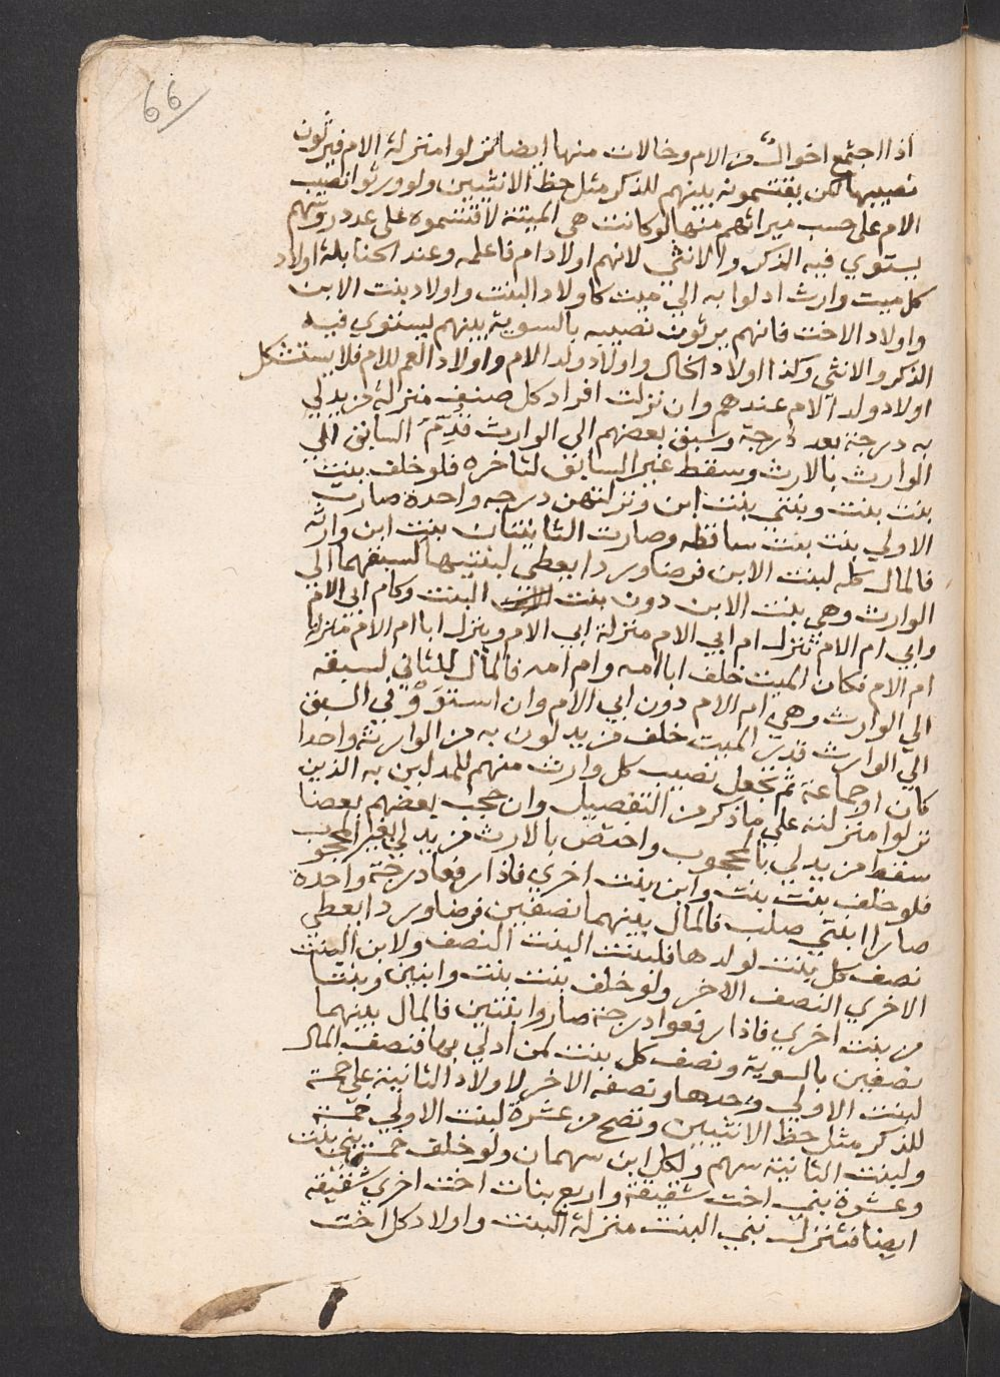 66
اذا اجتمع اخوال من الام وخالات منها ايضا نزلوا منزلة الام فيرثون
نصيبها لكن يقتسمونه بينهم للذكر مثل حظ الانثيين ولو ورثوا نصيب
الام على حسب ميراثهم منها لو كانت هي الميتة لاقتسموه على عدد روسهم
يستوي فيه الذكر والانثي لانهم اولاد ام فاعلمه وعند الحنابلة اولاد
كل ميت وارث ادلوا به الي ميت كاولاد البنت واولاد بنت الابن
واولاد الاخت فانهم يرثون نصيبه بالسوية بينهم يستوي فيه
الذكر والانثي وكذا اولاد الخال واولاد ولد الام واولاد العم للام فلا يستشكل
اولاد ولد الام عندهم وان نزلت افراد كل صنف منزلة من يدلي
به درجة بعد درجة وسبق بعضهم الى الوارث قدم السابق الي
الوارث بالارث وسقط غير السابق لتاخره فلو خلف بنت
بنت بنت وبنتي بنت ابن ونزلتهن درجه واحدة صارت
الاولي بنت بنت ساقطه وصارت الثانيتان بنت ابن وارثه
فالمال كله لبنت الابن فرضا وردا يعطي لبنتيها لسبقهما الى
الوارث وهي بنت الابن دون بنت البنت وكام ابي الام
وابي ام الام تنزل ام ابي الام منزلة ابي الام وينزل ابا ام الام منزلة
ام الام فكان الميت خلف ابا امه وام امه فالمال للثاني لسبقه
الي الوارث وهي ام الام دون ابي الام وان استووا في السبق
الي الوارث قدر الميت خلف من يدلون به من الوارثة واحدا
كان او جماعة ثم تجعل نصيب كل وارث منهم للمدلين به الذين
نزلوا منزلته علي ما ذكر من التفصيل وان حجب بعضهم بعضا
سقط من يدلي بالمحجوب واختص بالارث من يدلي بغير المحجوب
فلو خلف بنت بنت وابن بنت اخري فاذا رفعا درجة واحدة
صارا ابنتي صلب فالمال بينهما نصفين فرضا وردا يعطي
نصف كل بنت لولدها فلبنت البنت النصف ولابن البنت
الاخري النصف الاخر ولو خلف بنت بنت وابنين وبنتا
من بنت اخري فاذا رفعوا درجة صاروا بنتين فالمال بينهما
نصفين بالسوية ونصف كل بنت لمن ادلي بها فنصف المال
لبنت الاولي وحدها ونصفه الاخر لاولاد الثانية علي خمسة
للذكر مثل حظ الانثيين وتصح من عشرة لبنت الاولي خمسة
ولبنت الثانية سهم ولكل ابن سهمان ولو خلف خمسة بني بنت
وعشرة بني اخت شقيقة واربع بنات اخت اخري شقيقه
ايضا فتنزل بني البنت منزلة البنت واولاد كل اخت